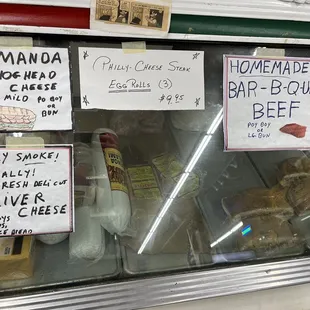 MANDA
HOGHEAD
CHEESE
MILD PO BOY
OR
BUN
PHILLY-CHEESE STEAK
EGG ROLLS (3)
$9.95
HOMEMADE
BAR-B-QUE
BEEF
PO BOY
OR
LG. BUN
SMOKE!
ALLY!
FRESH DELICUT
LIVER
CHEESE